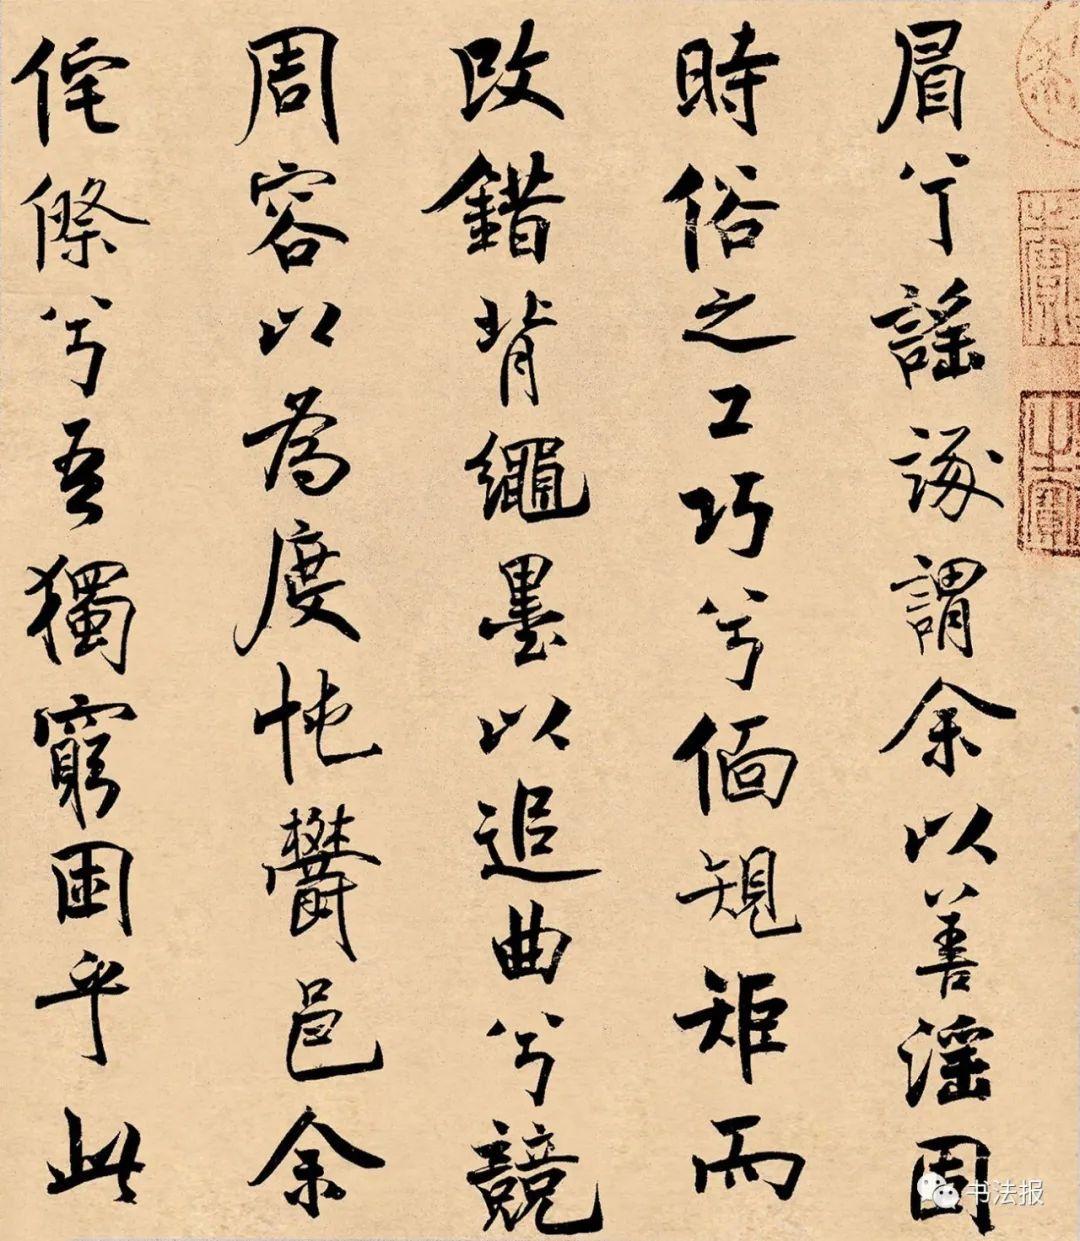 眉兮謠諑謂余以善淫固
時俗之工巧兮偭規矩而
改錯背繩墨以追曲兮競
周容以為度忳鬱邑余
侘傺兮吾獨窮困乎此
书法报